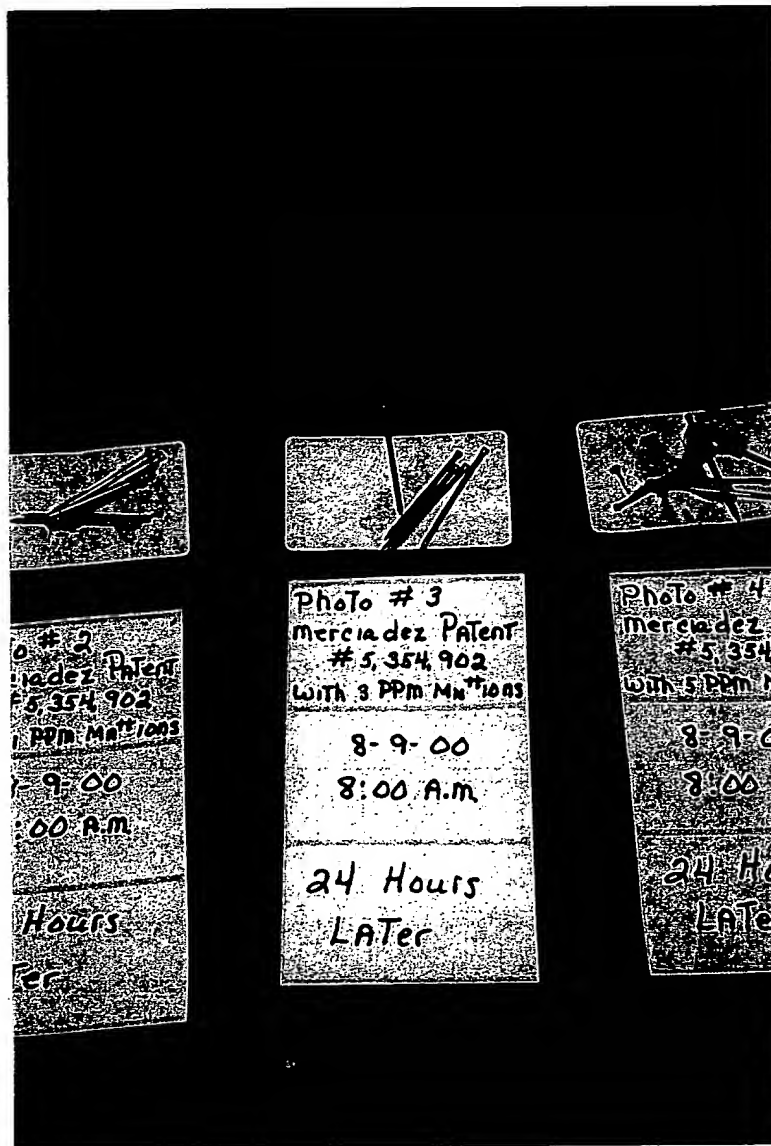 o # 2
iadez PATenT
# 5,354,902
1 PPm Mn++ions
9-00
:00 A.m.
Hours
Ter
PhoTo # 3
merciadez PATenT
# 5,354,902
wiTh 3 PPm Mn++ions
8-9-00
8:00 A.m.
24 Hours
LATer
PhoTo # 4
merciadez
# 5,354
wiTh 5 PPm
8-9-0
8:00
24 Ho
LATe